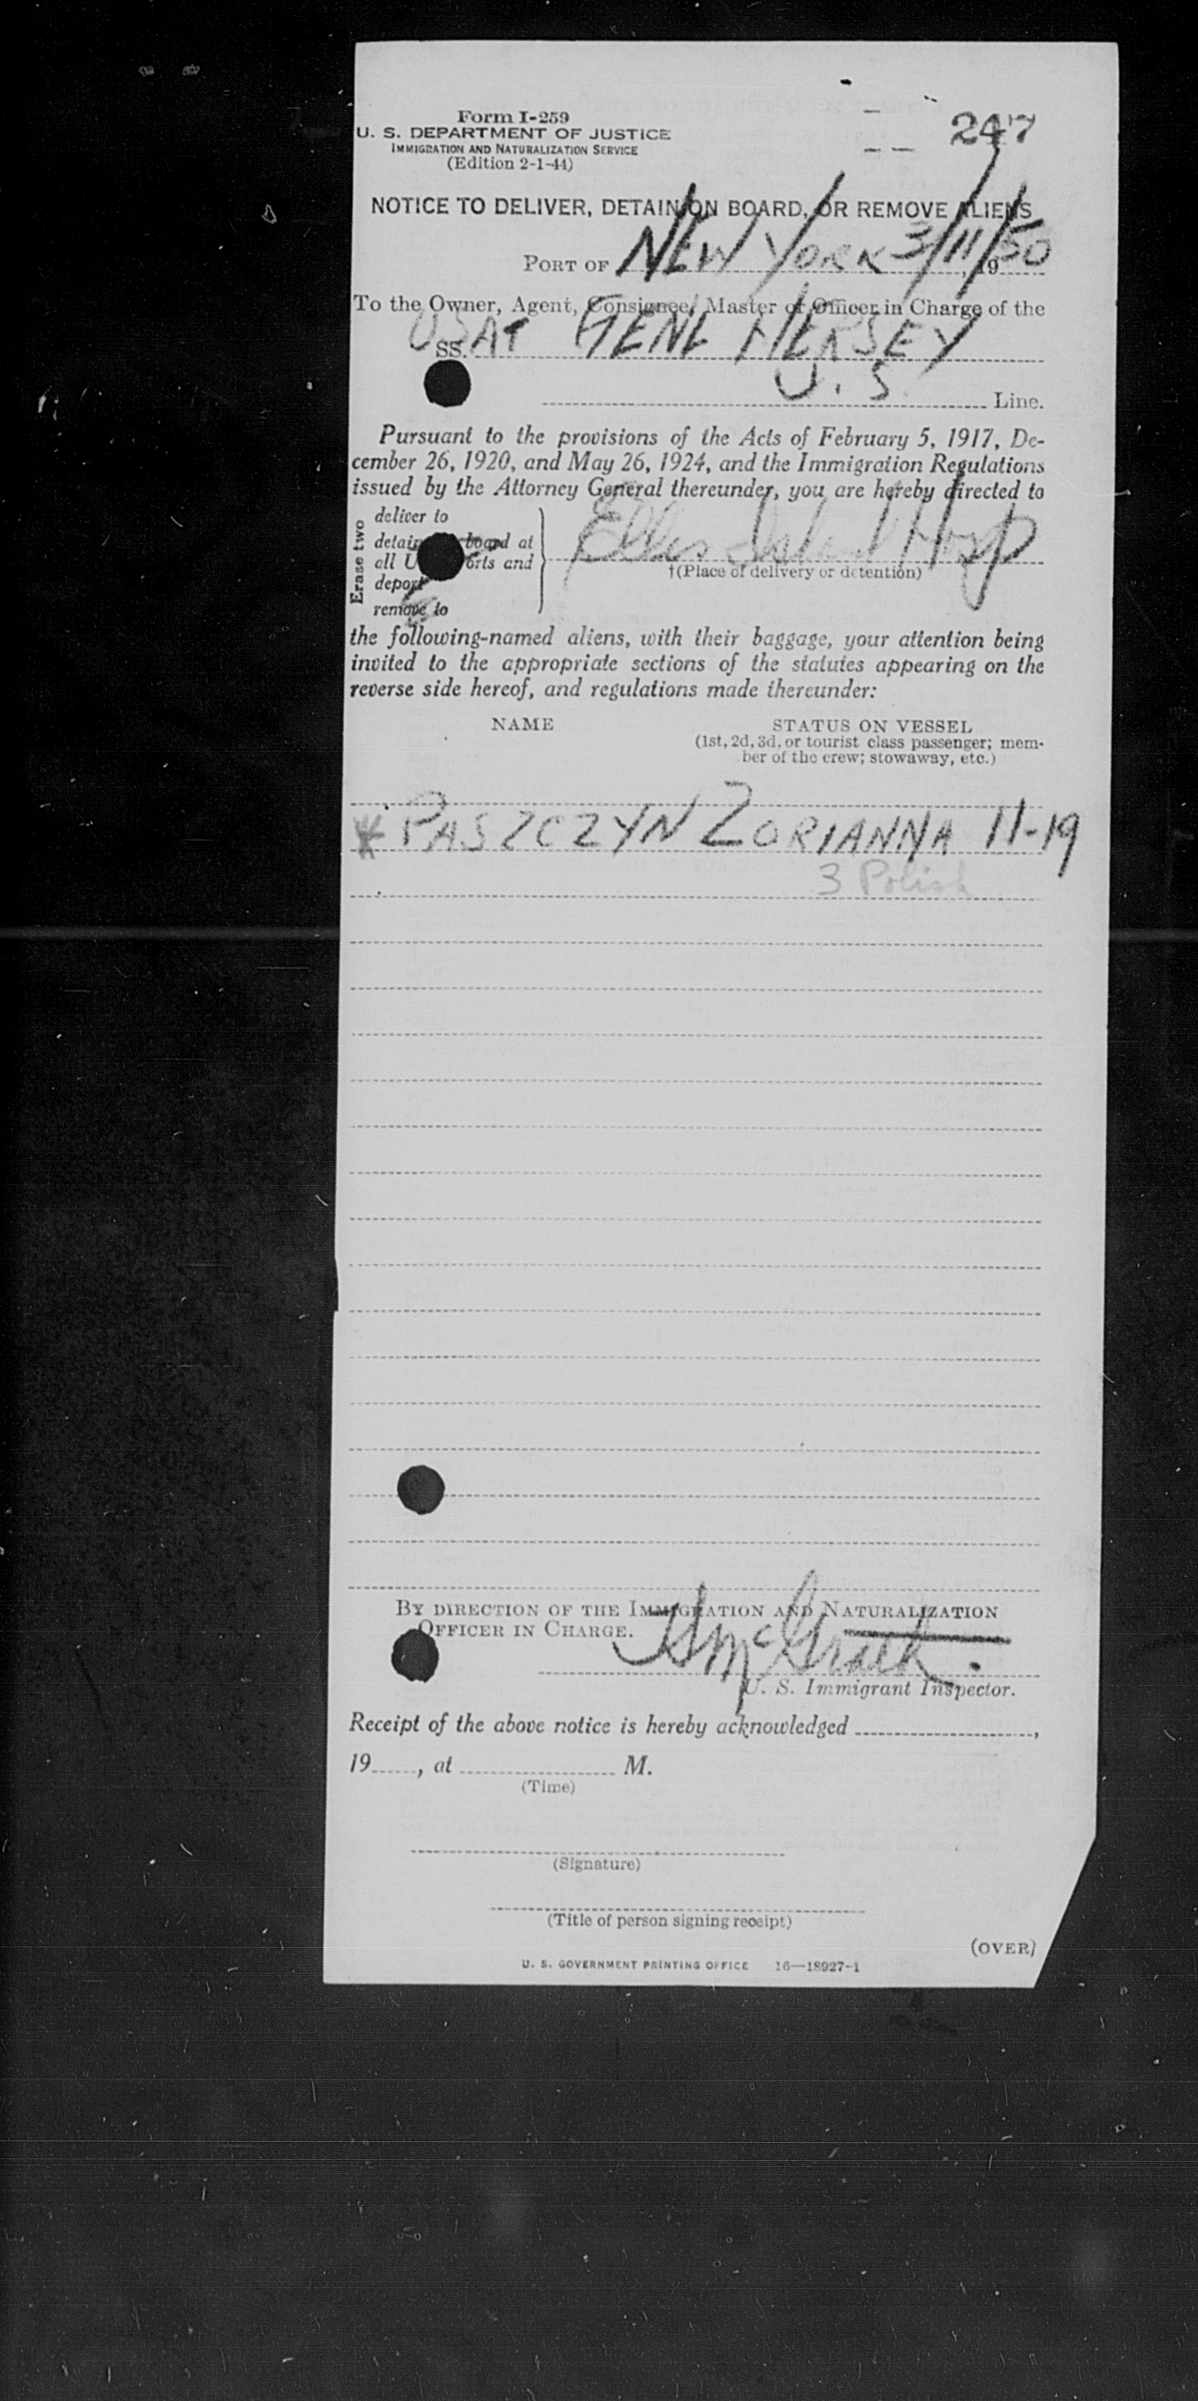 Form I-259
U. S. DEPARTMENT OF JUSTICE
IMMIGRATION AND NATURALIZATION SERVICE
(Edition 2-1-44)
247
NOTICE TO DELIVER, DETAIN ON BOARD, OR REMOVE ALIENS
PORT OF NEW YORK 3/11/50, 19
To the Owner, Agent, Consignee, Master or Officer in Charge of the
SS. USAT GENL HERSEY
U. S. Line.
Pursuant to the provisions of the Acts of February 5, 1917, De-
cember 26, 1920, and May 26, 1924, and the Immigration Regulations
issued by the Attorney General thereunder, you are hereby directed to
Erase two
deliver to
detain board at
all U orts and
deport
remove to
Ellis Island Hosp
†(Place of delivery or detention)
the following-named aliens, with their baggage, your attention being
invited to the appropriate sections of the statutes appearing on the
reverse side hereof, and regulations made thereunder:
NAME STATUS ON VESSEL
(1st, 2d, 3d, or tourist class passenger; mem-
ber of the crew; stowaway, etc.)
* PASZCZYN ZORIANNA 11-19
3 Polish
BY DIRECTION OF THE IMMIGRATION AND NATURALIZATION
OFFICER IN CHARGE.
McGrath
U. S. Immigrant Inspector.
Receipt of the above notice is hereby acknowledged ,
19 , at M.
(Time)
(Signature)
(Title of person signing receipt)
(OVER)
U. S. GOVERNMENT PRINTING OFFICE 16—18927-1